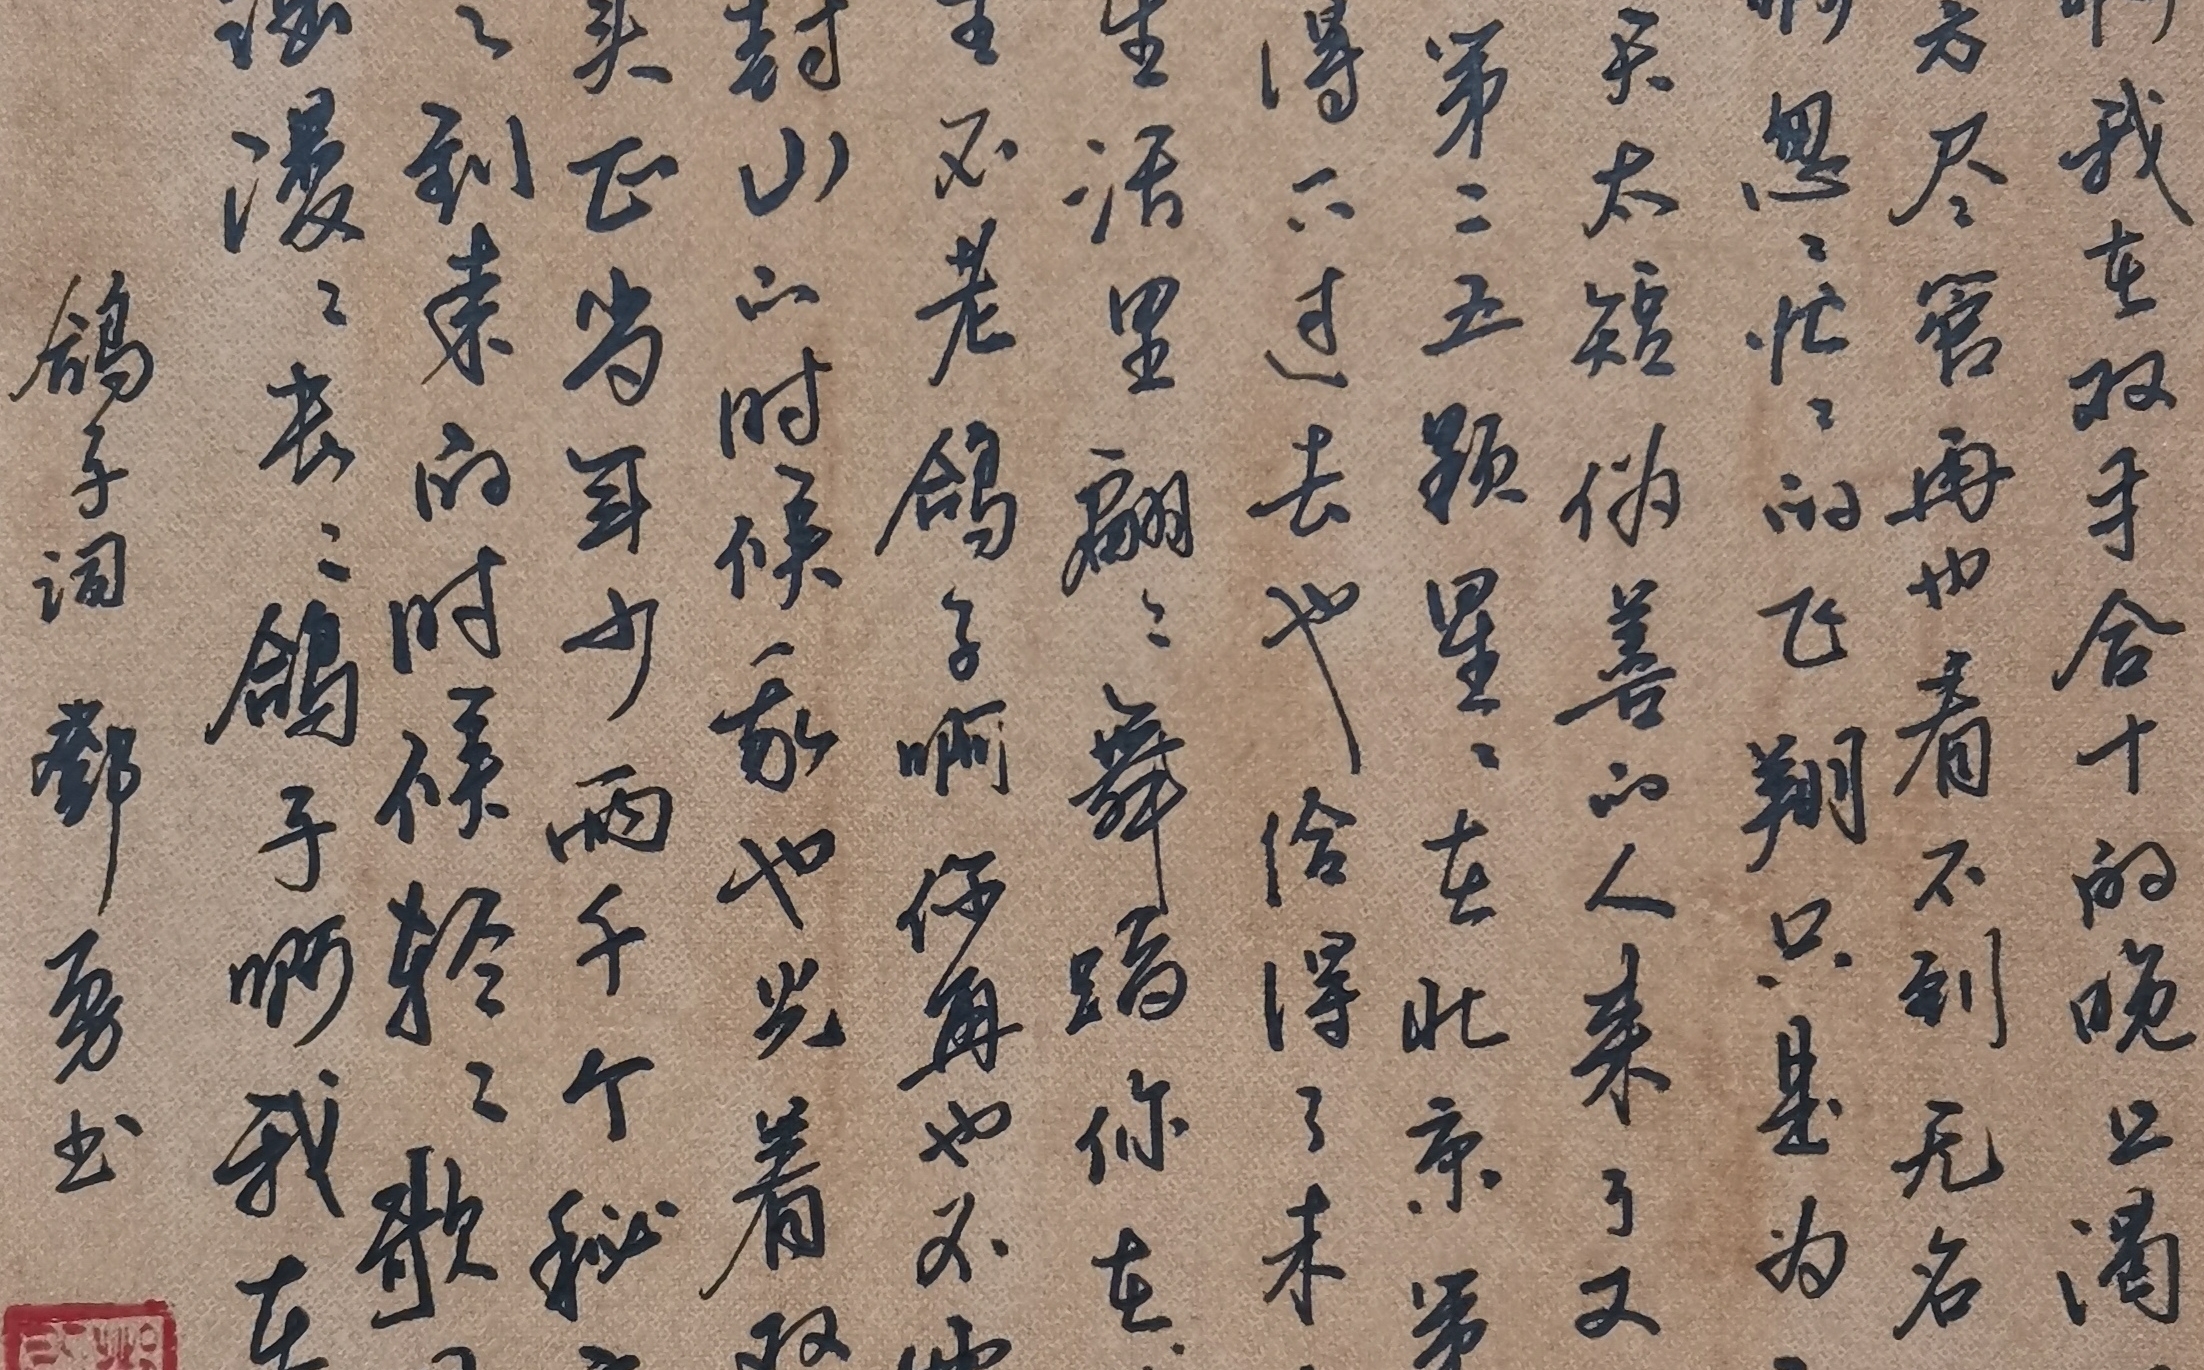 啊我在双手合十的晚上渴
方尽管再也看不到无名
啊匆匆忙忙的飞翔只是为
天太短伪善的人来了又
第二五颗星星在北京第
得不过去也恰得了未
生活里翩翩舞蹈你在
生不老鸽子啊你再也不
封山的时候我也光着双
买正当年少两千个秘
到来的时候轻轻歌
漫漫长长鸽子啊我在
鸽子词 鄧勇书